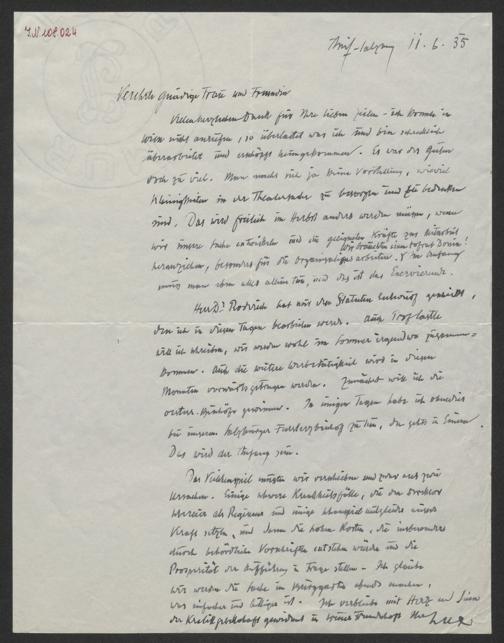 J.N 108.024
Aif-Salzburg 11.6.35
Verehrte gnädige Frau und Freundin
Vielen herzlichen Dank für Ihre lieben Zeilen - ich konnte in
Wien nicht anrufen, so überlastet war ich und bin schrecklich
überarbeitet und erschöpft heimgekommen. Es war des Guten
doch zu viel. Man macht sich ja keine Vorstellung, wieviel
Kleinigkeiten in der Theatersache zu besorgen und zu bedenken
sind. Das wird freilich im Herbst anders werden müssen, wenn
wir unsere Sache entwickeln und die geeigneten Kräfte zur Mitarbeit
heranziehen, besonders für die Organisation Im Anfang
muss man eben alles allein tun, und das ist das Enervierende.
Herr Dr. Roderich hat mir den Statuten Entwurf geschickt,
den ich in diesen Tagen bearbeiten werde. Auch Prof Castle
will ich schreiben, wir werden wohl im Sommer irgendwo zusammen=
kommen. Auch die weitere Werbetätigkeit wird in diesen
Monaten vorwärtsgetragen werden. Zunächst will ich die
österr. Bischöfe gewinnen. In einigen Tagen habe ich ohnedies
bei unserem Salzburger Fürsterzbischof zu tun, da geht's in Einem.
Das wird der Anfang sein.
Das Veilchenspiel mussten wir verschieben und zwar aus zwei
Ursachen. Einige schwere Krankheitsfälle, die den Direktor
als Regisseur und einige Mitglieder ausser
Kraft setzten, und dann die hohen Kosten, die insbesondere
durch behördliche Vorschriften entstehen würden und die
Prosperität der Aufführung in Frage stellen - Ich glaube
wir werden die Sache im Burggarten abends machen,
was einfacher und billiger ist. Ich verbleibe mit Herz und Sinn
gewidmet in treuer Freundschaft Ihr Lux